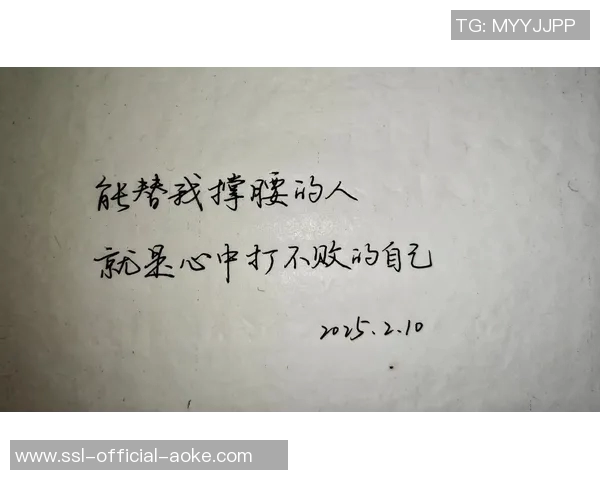 TG: MYYJJPP
能替我撑腰的人
就是心中打不败的自己
2025.2.10
www.ssl-official-aoke.com